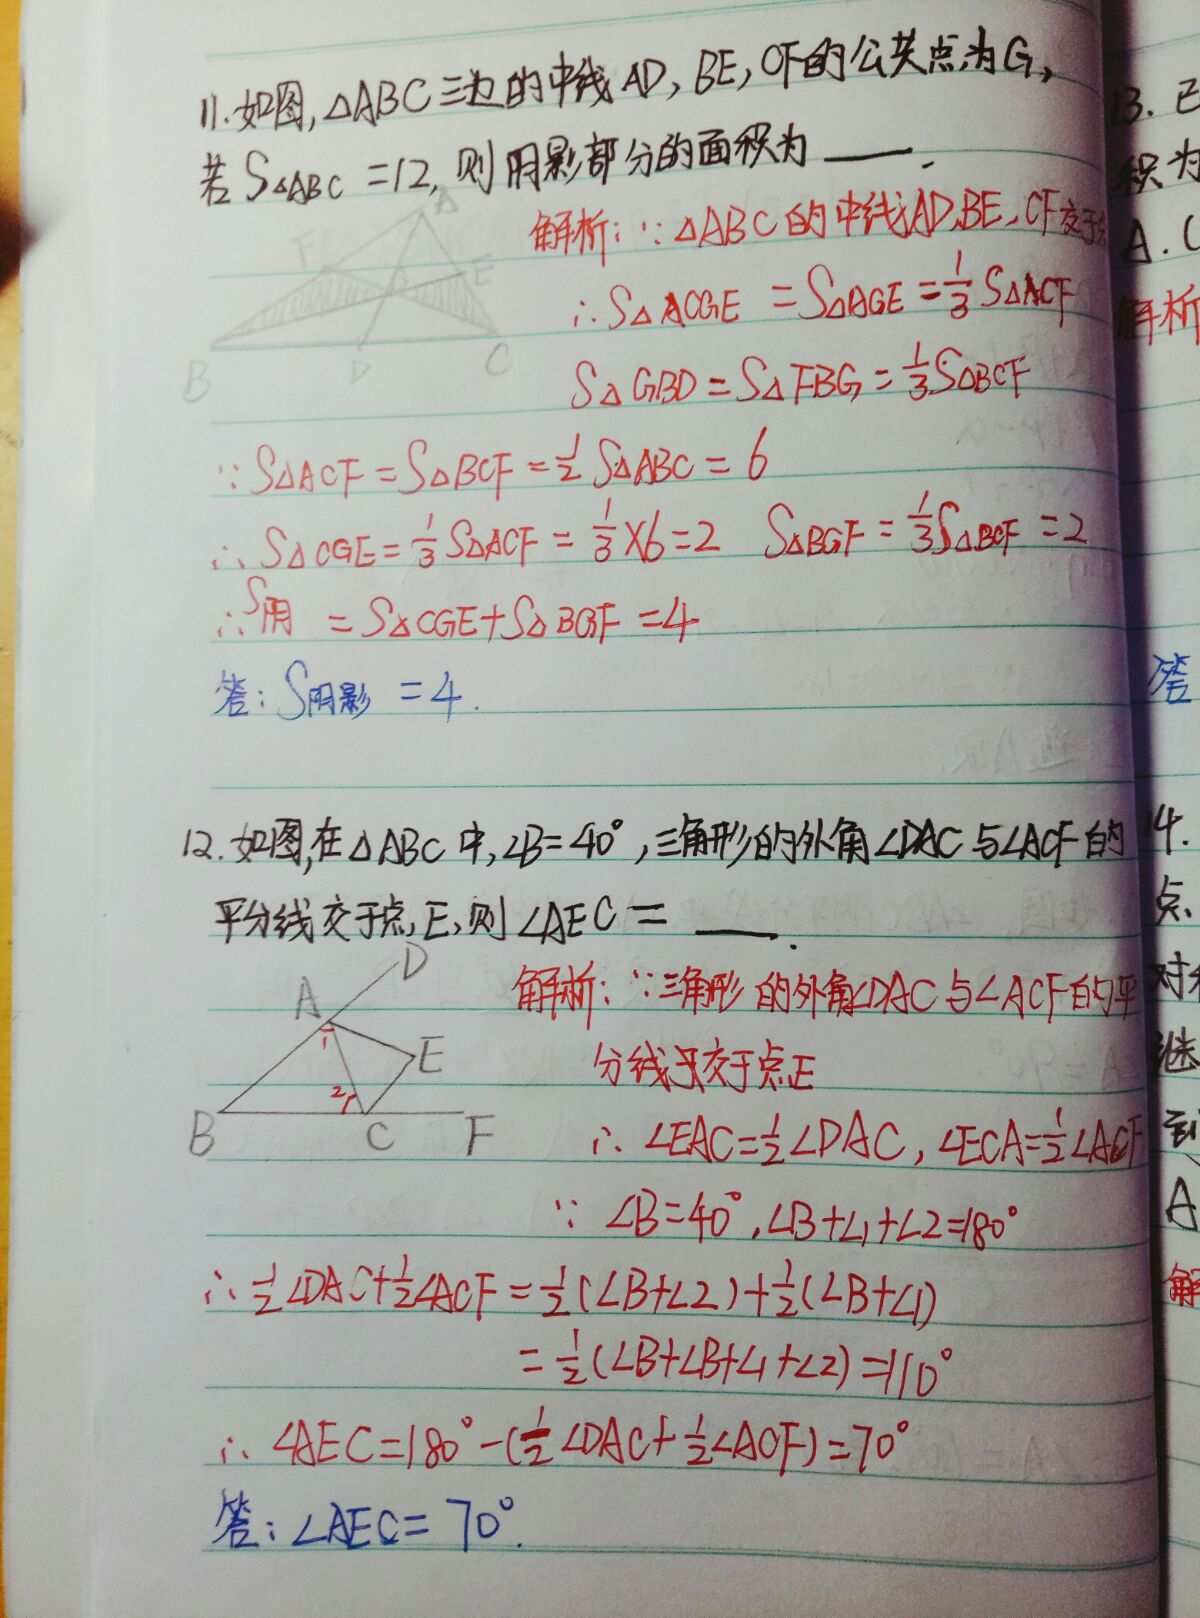 11.如图,△ABC三边的中线AD,BE,CF的公共点为G,
若S△ABC=12,则阴影部分的面积为____.
A
F
E
B
D
C
解析:∵△ABC的中线AD,BE,CF交于
∴S△ACGE=S△AGE=1/3 S△ACF
S△GBD=S△FBG=1/3S△BCF
∵S△ACF=S△BCF=1/2 S△ABC=6
∴S△CGE=1/3 S△ACF=1/3×6=2 S△BGF=1/3S△BCF=2
∴S阴=S△CGE+S△BGF=4
答:S阴影=4.
12.如图,在△ABC中,∠B=40°,三角形的外角∠DAC与∠ACF的
平分线交于点,E,则∠AEC=____.
D
A
1
E
2
B
C
F
解析:∵三角形的外角∠DAC与∠ACF的平
分线交于点E
∴∠EAC=1/2∠DAC,∠ECA=1/2∠ACF
∵∠B=40°,∠B+∠1+∠2=180°
∴1/2∠DAC+1/2∠ACF=1/2(∠B+∠2)+1/2(∠B+∠1)
=1/2(∠B+∠B+∠1+∠2)=110°
∴∠AEC=180°-(1/2∠DAC+1/2∠ACF)=70°
答:∠AEC=70°.
13.已
积为
A.(
解析
答
14.
点
对
继
到
A
解